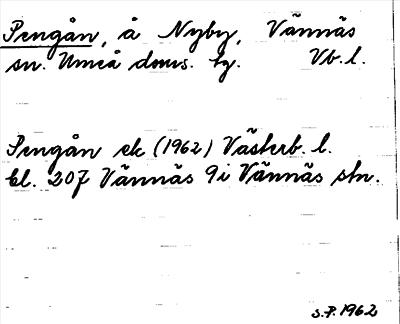 Pengån, å Nyby, Vännäs
sn. Umeå doms. tg. Vb. l.
Pengån ek (1962) Västerb. l.
bl. 207 Vännäs 9i Vännäs stn.
S.P. 1962